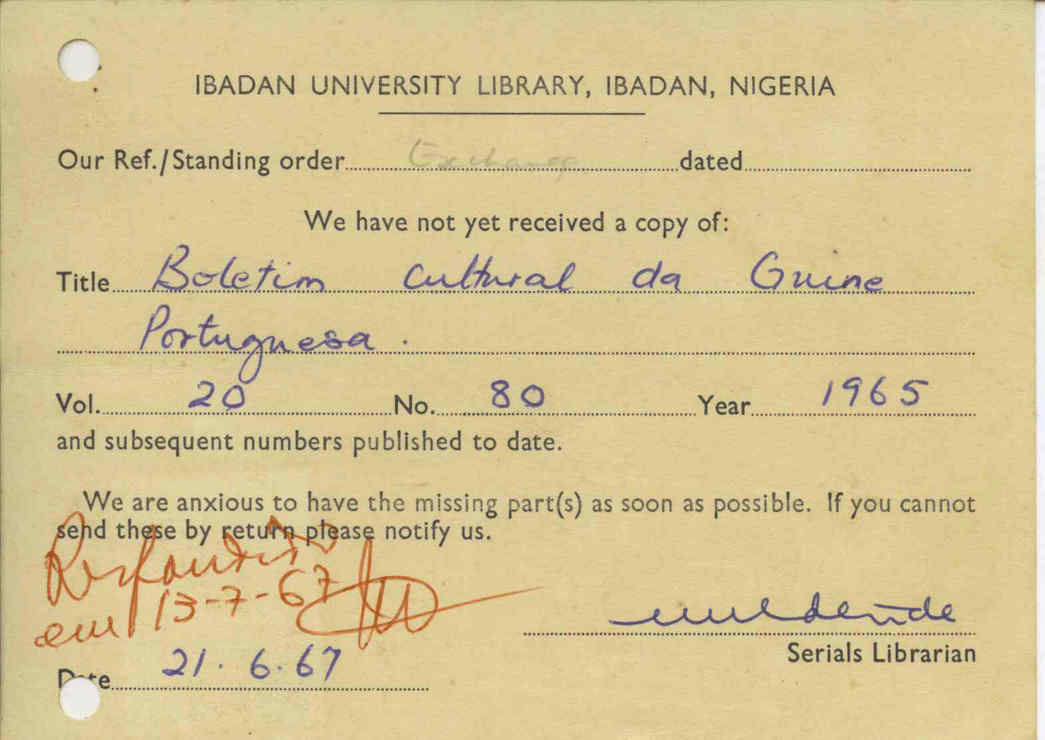 IBADAN UNIVERSITY LIBRARY, IBADAN, NIGERIA
Our Ref./Standing order Exchange dated
We have not yet received a copy of:
Title Boletim Cultural da Guine
Portuguesa.
Vol. 20 No. 80 Year 1965
and subsequent numbers published to date.
We are anxious to have the missing part(s) as soon as possible. If you cannot
send these by return please notify us.
Respondido
em 13-7-67
Serials Librarian
Date 21.6.67